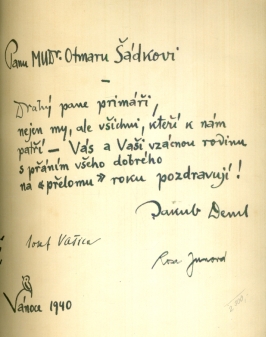 Panu MUDr. Otmaru Šádkovi
—
Drahý pane primáři,
nejen my, ale všichni, kteří k nám
patří — Vás a Vaši vzácnou rodinu
s přáním všeho dobrého
na «přelomu» roku pozdravují!
Jakub Deml
Josef Vašica
Rosa Junová
Vánoce 1940